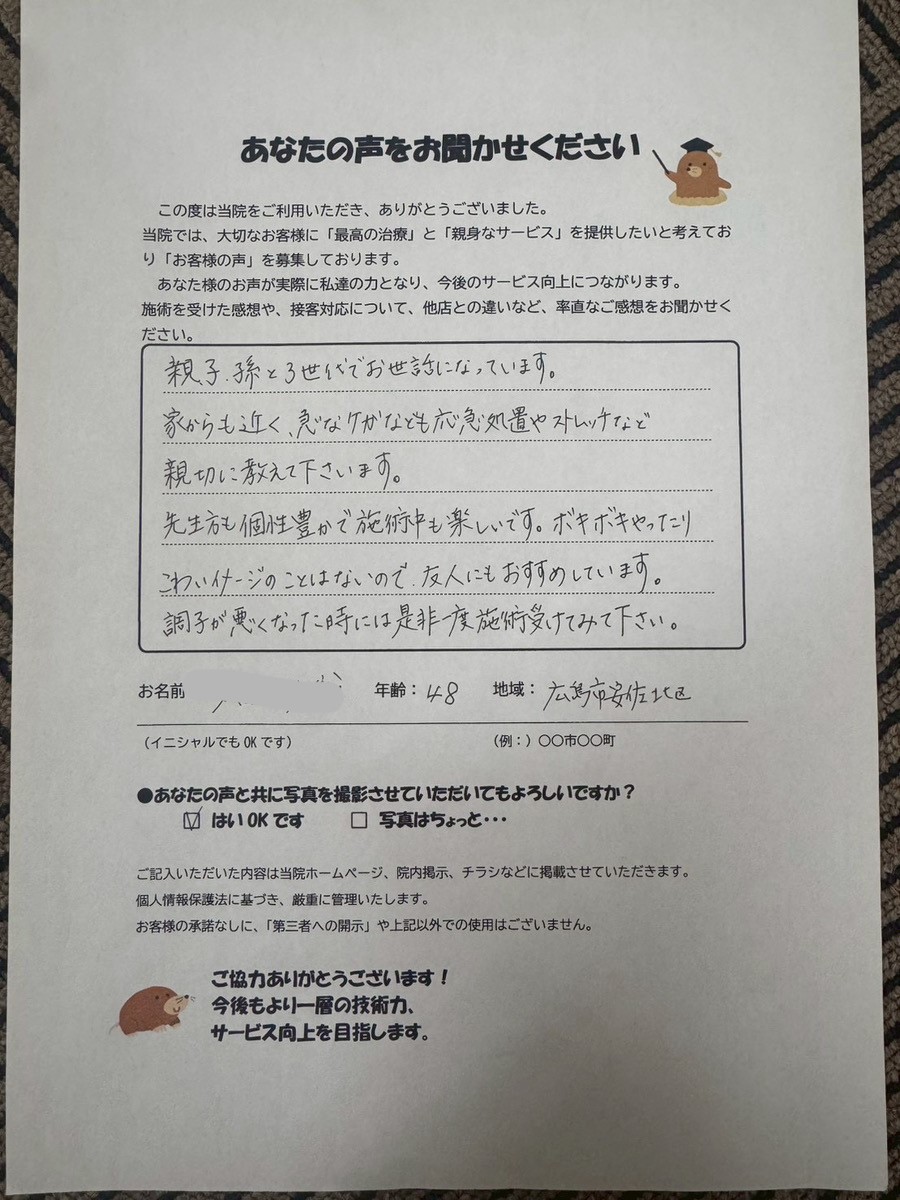 あなたの声をお聞かせください
この度は当院をご利用いただき、ありがとうございました。
当院では、大切なお客様に「最高の治療」と「親身なサービス」を提供したいと考えてお
り「お客様の声」を募集しております。
あなた様のお声が実際に私達の力となり、今後のサービス向上につながります。
施術を受けた感想や、接客対応について、他店との違いなど、率直なご感想をお聞かせく
ださい。
親、子、孫と3世代でお世話になっています。
家からも近く、急なケガなども応急処置やストレッチなど
親切に教えて下さいます。
先生方も個性豊かで施術中も楽しいです。ボキボキやったり
こわいイメージのことはないので、友人にもおすすめしています。
調子が悪くなった時には是非一度施術受けてみて下さい。
お名前 年齢：48 地域：広島市安佐北区
（イニシャルでもOKです） （例：）〇〇市〇〇町
●あなたの声と共に写真を撮影させていただいてもよろしいですか？
☑ はいOKです □ 写真はちょっと・・・
ご記入いただいた内容は当院ホームページ、院内掲示、チラシなどに掲載させていただきます。
個人情報保護法に基づき、厳重に管理いたします。
お客様の承諾なしに、「第三者への開示」や上記以外での使用はございません。
ご協力ありがとうございます！
今後もより一層の技術力、
サービス向上を目指します。